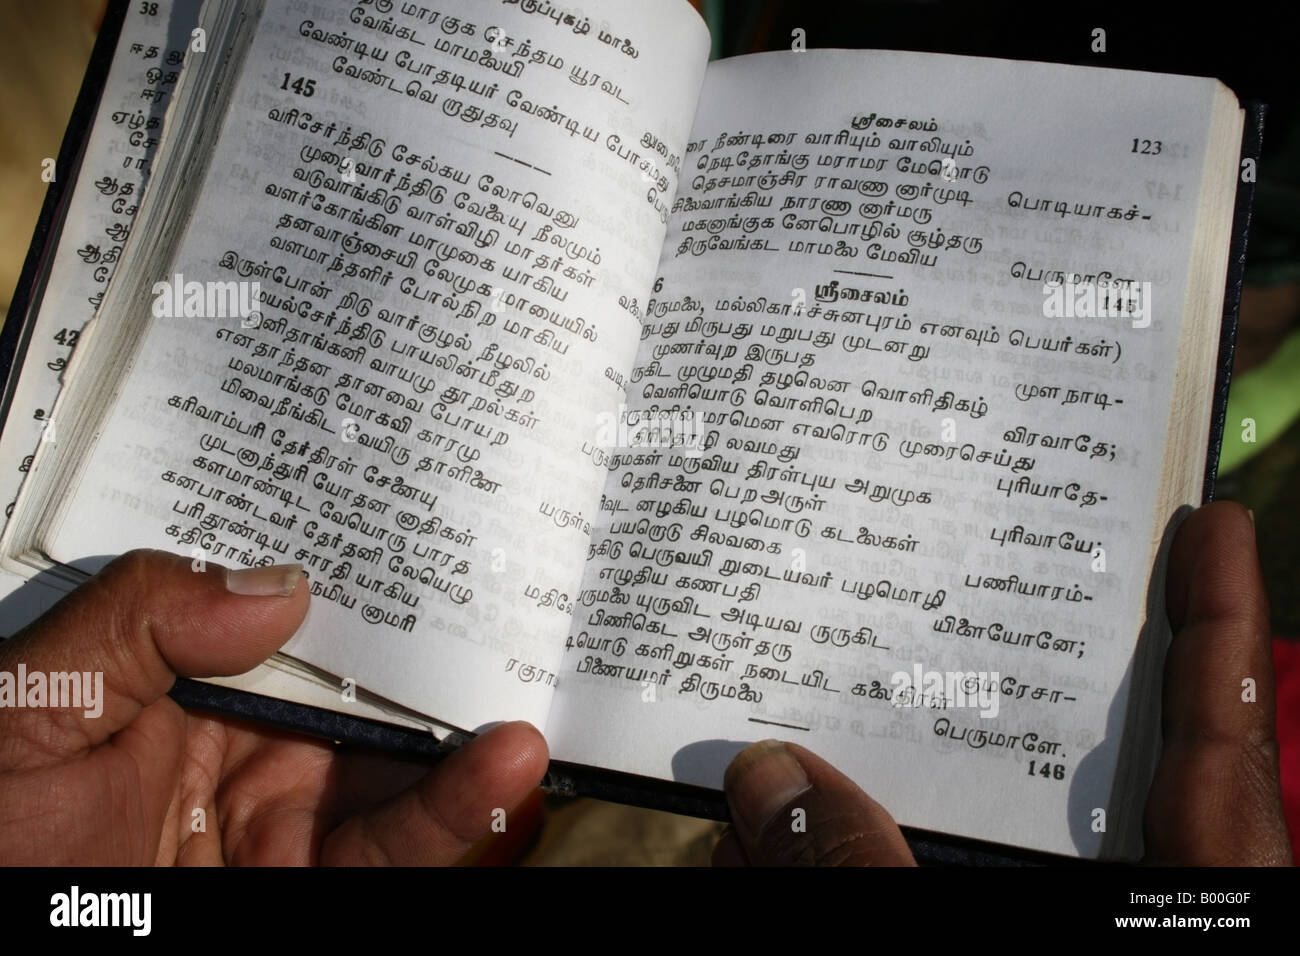 38
ருப்புகழ் மாலை
மாரகுக சேந்தம யூரவட
வேங்கட மாமலையி
வேண்டிய போதடியர் வேண்டிய போகமது
வேண்டவெ றாதுதவு
145
வரிசேர்ந்திடு சேல்கய லோவெனு
முழைவார்ந்திடு வேலையு நீலமும்
வடுவாங்கிடு வாள்விழி மாதர்கள்
வளர்கோங்கிள மாமுகை யாகிய
தனவாஞ்சையி லேமுக மாயையில்
வளமாந்தளிர் போல்நிற மாகிய
இருள்போன் றிடு வார்குழல் நீழலில்
மயல்சேர்ந்திடு பாயலின்மீதுற
இனிதாங்கனி வாயமு தூறல்கள்
எனதாந்தன தானவை போயற
மலமாங்கடு மோகவி காரமு
மிவைநீங்கிட வேயிரு தாளினை
கரிவாம்பரி தேர்திரள் சேனையு
முடனாந்துரி யோதன னாதிகள்
களமாண்டிட வேயொரு பாரத
கனபாண்டவர் தேர்தனி லேயெழு
பரிதூண்டிய சாரதி யாகிய
கதிரோங்கி நேமிய னாமரி
42
ஸ்ரீசைலம்
123
ரை நீண்டிரை வாரியும் வாலியும்
நெடிதோங்கு மராமர மேழொடு
தெசமாஞ்சிர ராவண னார்முடி பொடியாகச்-
சிலைவாங்கிய நாரண னார்மரு
மகனாங்குக னேபொழில் சூழ்தரு
திருவேங்கட மாமலை மேவிய பெருமாளே.
145
6
ஸ்ரீசைலம்
திருமலை, மல்லிகார்ச்சுனபுரம் எனவும் பெயர்கள்)
நபது மிருபது மறுபது முடனறு
முணர்வுற இருபத முளநாடி-
ருகிட முழுமதி தழலென வொளிதிகழ்
வெளியொடு வொளிபெற விரவாதே;
ருவினில் மரமென எவரொடு முரைசெய்து
திரிதொழி லவமது புரியாதே-
ருமகள் மருவிய திரள்புய அறுமுக
தெரிசணை பெறஅருள் புரிவாயே;
ரிவுட னழகிய பழமொடு கடலைகள்
பயறொடு சிலவகை பணியாரம்-
நகிடு பெருவயி றுடையவர் பழமொழி
எழுதிய கணபதி யிளையோனே;
பருமலை யுருவிட அடியவ ருருகிட
பிணிகெட அருள்தரு குமரேசா-
டியொடு களிறுகள் நடையிட கலைதிரள்
பிணையமர் திருமலை பெருமாளே.
146